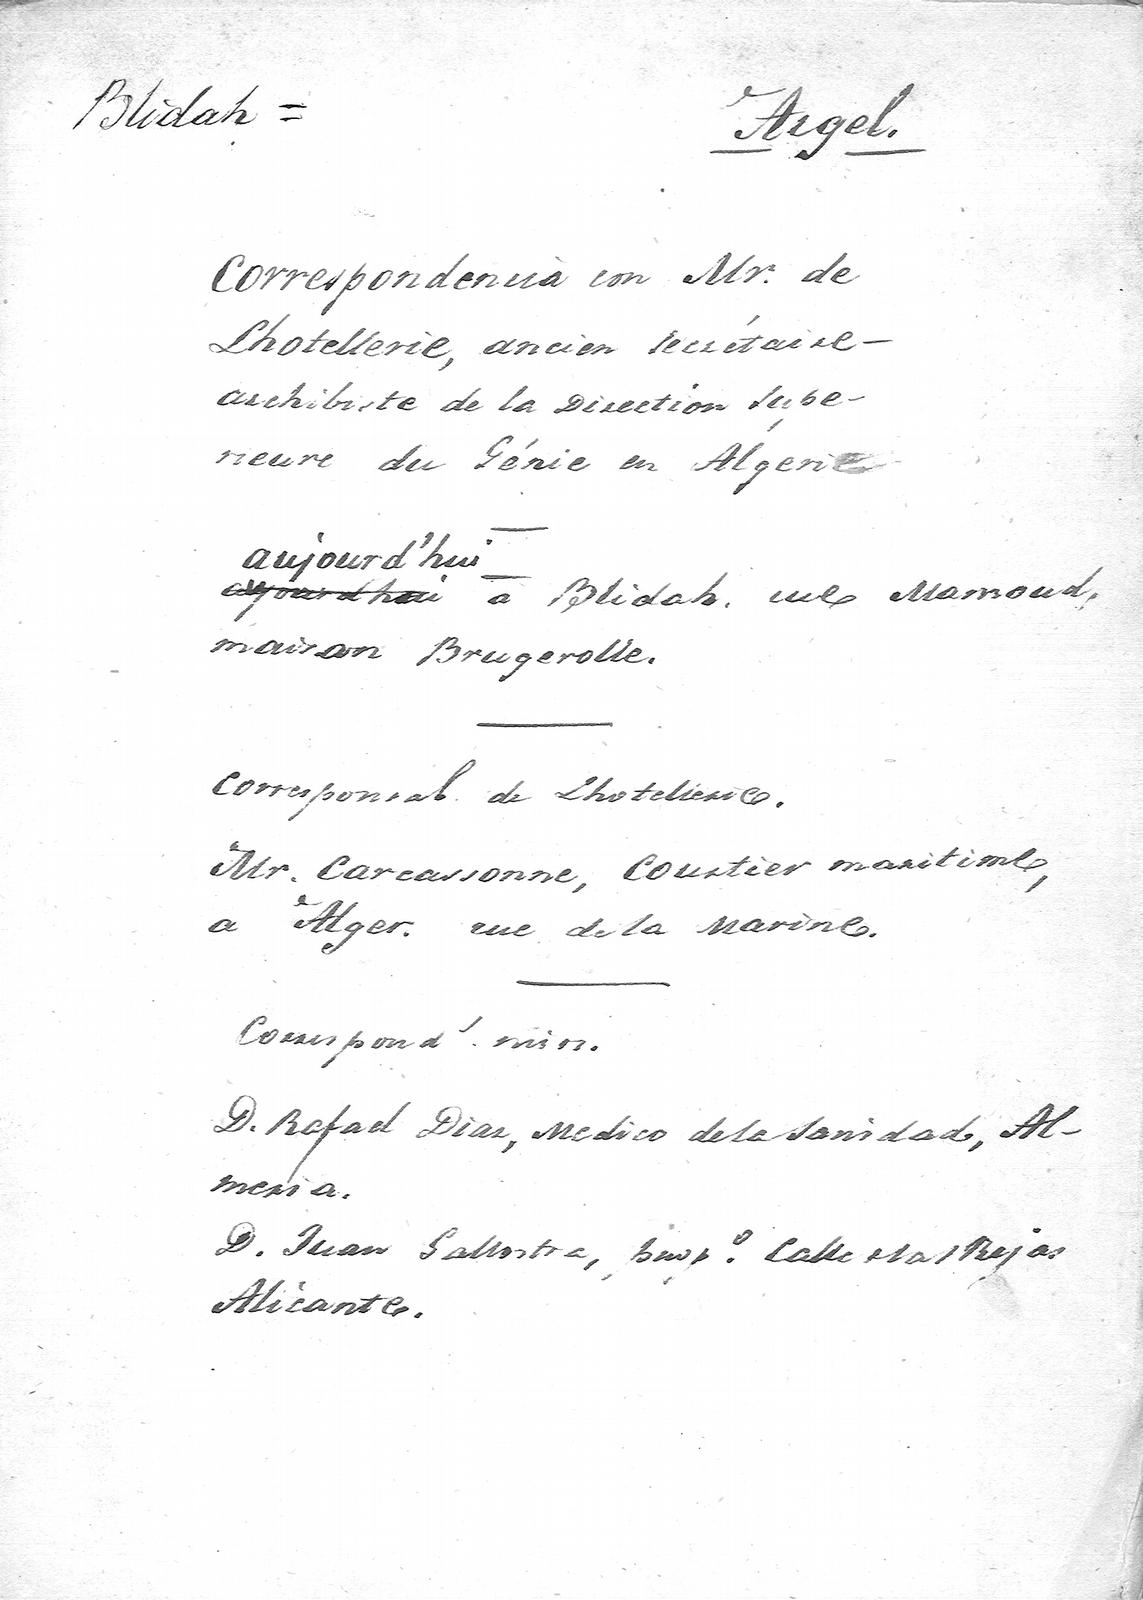 Blidah =
Argel.
Correspondencia con Mr. de
Lhotellerie, ancien secrétaire-
archibiste de la Direction Supe-
rieure du Génie en Algerie
aujourd'hui
ajourd'hui a Blidah. rue Mamoud,
maison Brugerolle.
Corresponsal de Lhotellerie.
Mr. Carcassonne, Courtier maritime,
a Alger. rue de la Marine.
Correspond' mios.
D. Rafael Diaz, Medico de la Sanidad, Al-
meria.
D. Juan Gallostra, Calle Rejas
Alicante.